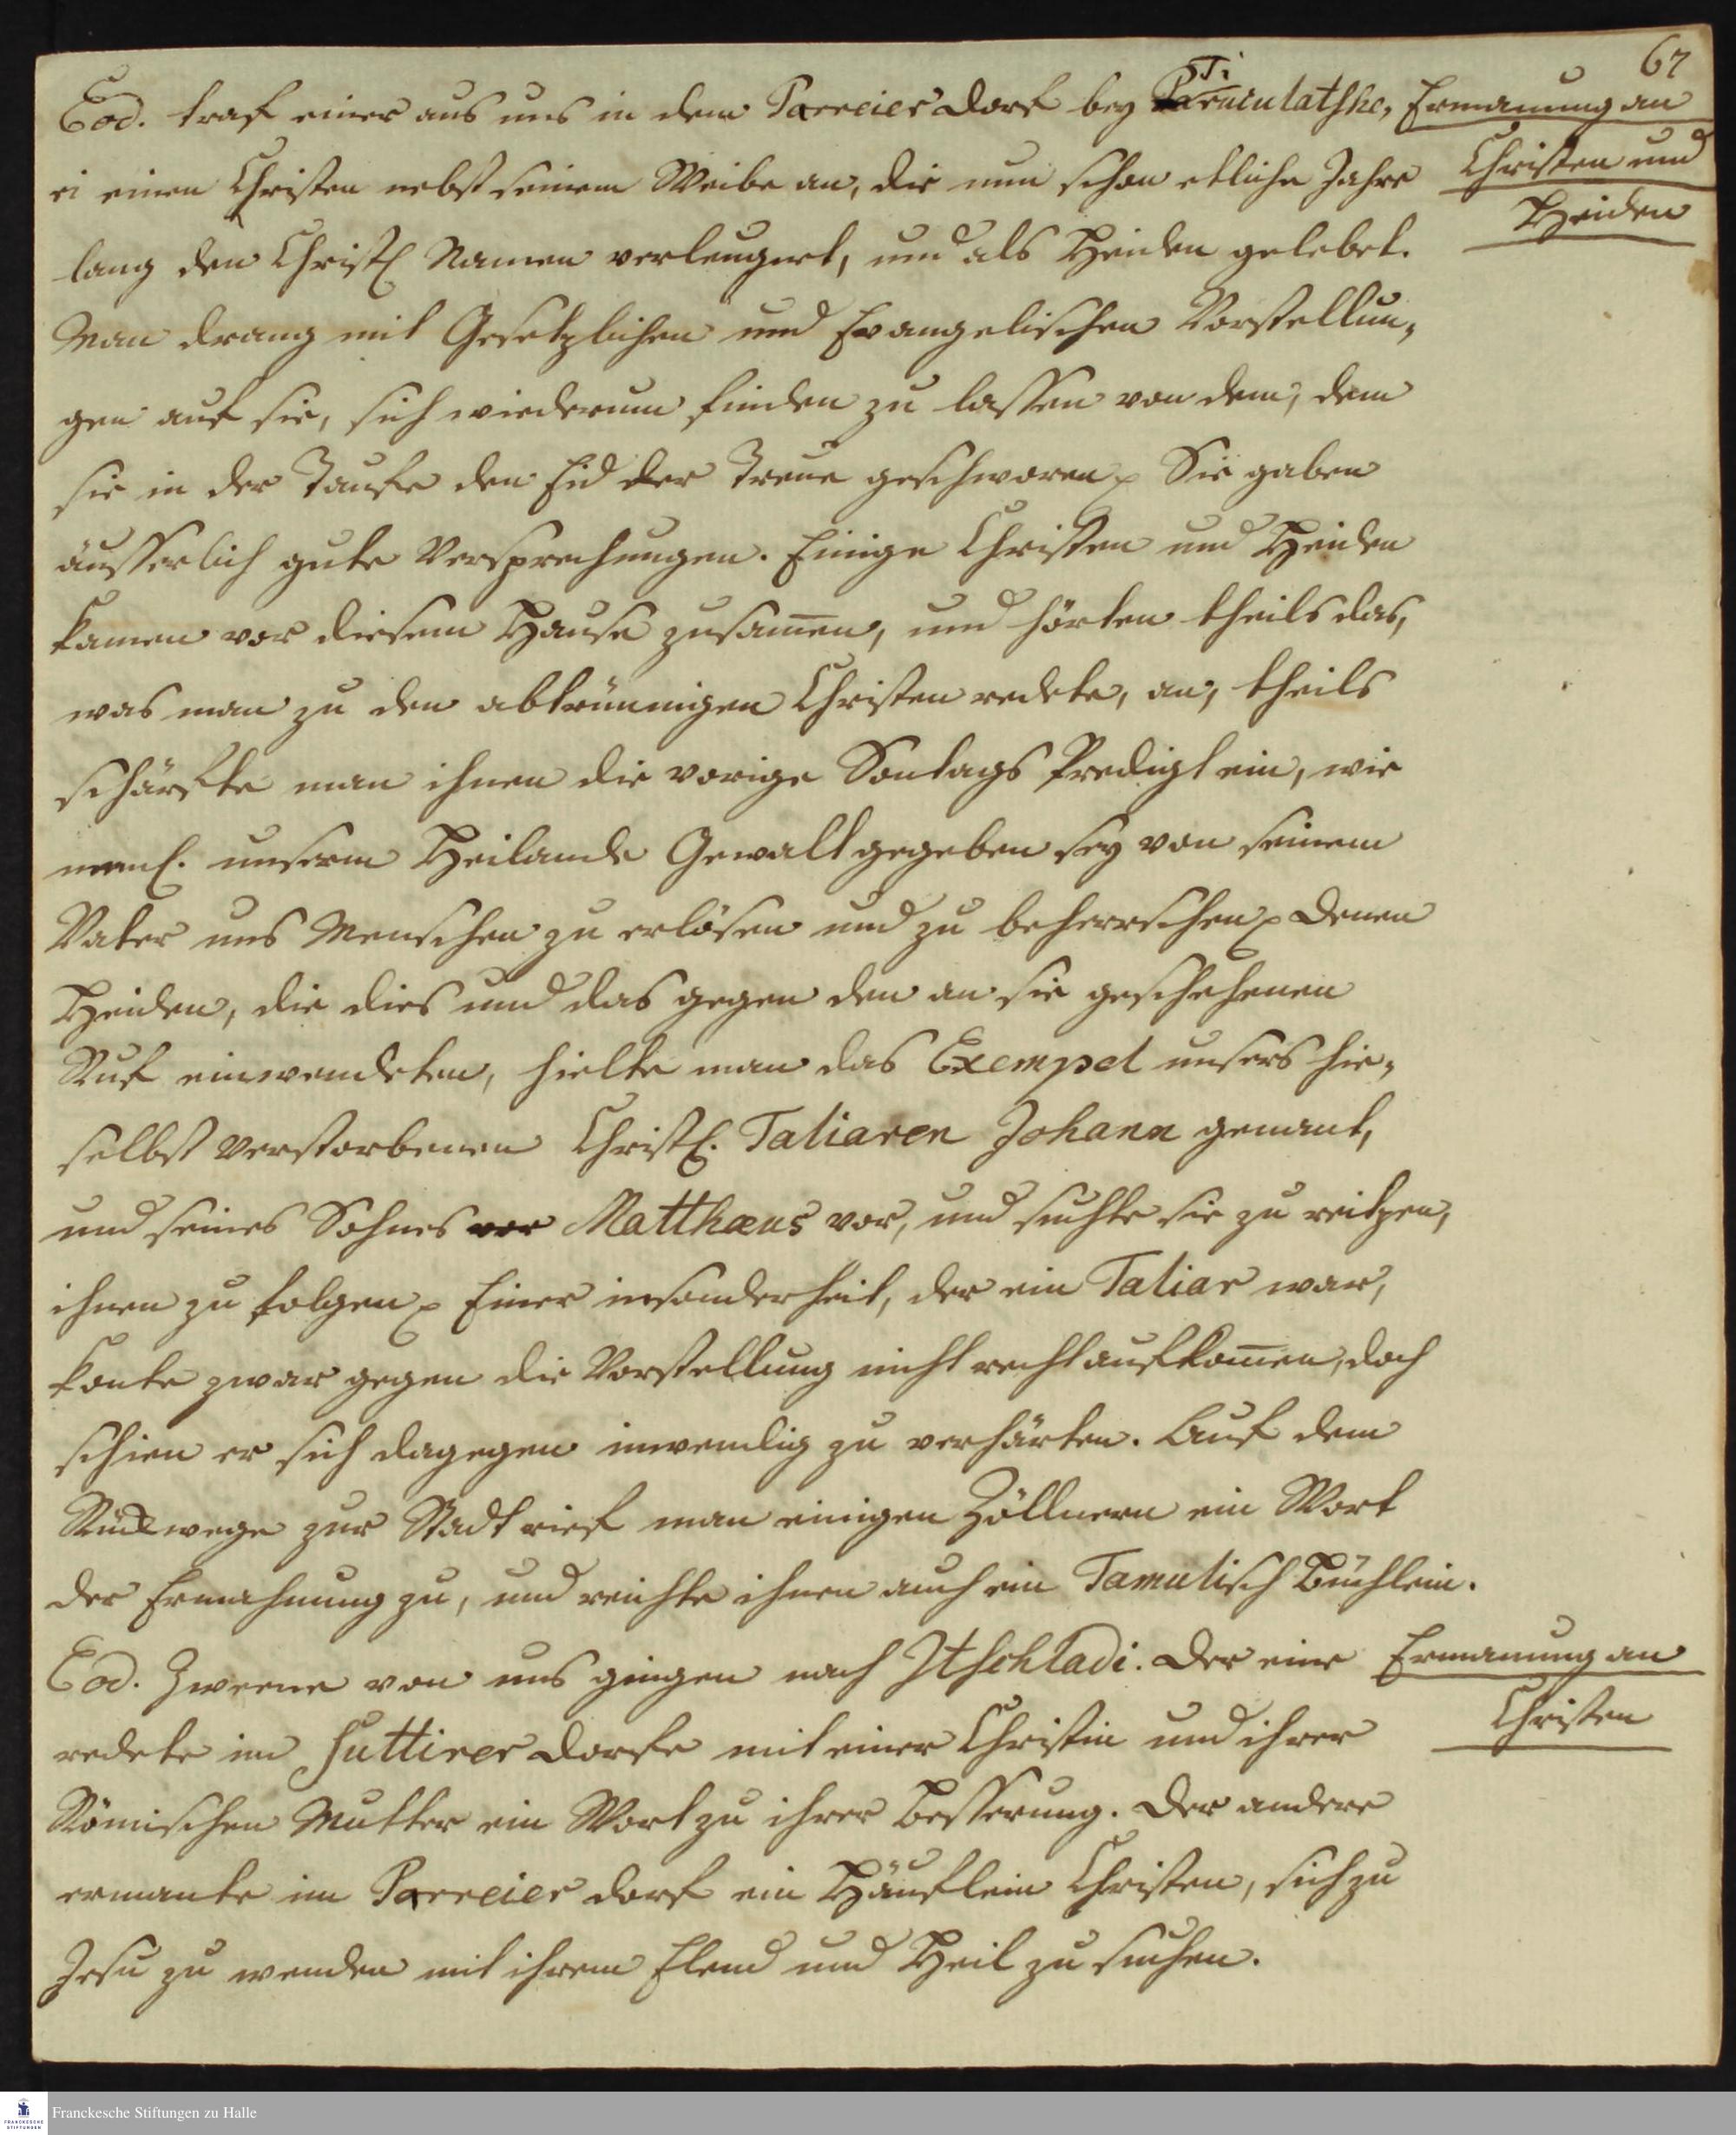 67
Eod. traf einer aus uns in dem Parreier Dorf bey Tiruculatshe,
ri einen Christen nebst seinem Weibe an, die nun schon etliche Jahre
lang den Christl. Namen verleugnet, und als Heiden gelebet.
Man drang mit Gesetzlichen und Evangelischen Vorstellun-
gen auf sie, sich wiederum finden zu lassen von dem, dem
sie in der Taufe den Eid der Treue geschworen p Sie gaben
äusserlich gute Versprechungen. Einige Christen und Heiden
kamen vor diesem Hause zusam̅en, und hörten theils das,
was man zu den abtrünnigen Christen redete, an, theils
schärfte man ihnen die vorige Sontags Predigt ein, wie
neml. unserm Heilande Gewalt gegeben sey von seinem
Vater uns Menschen zu erlösen und zu beherrschen p Denen
Heiden, die dies und das gegen den an sie geschehenen
Ruf einwendeten, hielte man das Exempel unsers hie-
selbst verstorbenen Christl. Taliaren Johann genant,
und seines Sohnes vor Matthæus vor, und suchte sie zu reitzen,
ihnen zu folgen p Einer insonderheit, der ein Taliar war,
konte zwar gegen die Vorstellung nicht recht aufkom̅en, doch
schien er sich dagegen inwendig zu verhärten. Auf dem
Rückwege zur Stadt rief man einigen Zöllnern ein Wort
der Ermahnung zu, und reichte ihnen auch ein Tamulisch Büchlein.
Eod. Zweene von uns gingen nach Itschladi. Der eine
redete im Suttirer Dorfe mit einer Christin und ihrer
Römischen Mutter ein Wort zu ihrer Besserung. Der andere
ermante im Parreier dorf ein Häuflein Christen, sich zu
Jesu zu wenden mit ihrem Elend und Heil zu suchen.
Ermanung an
Christen und
Heiden
Ermanung an
Christen
FRANCKESCHE
STIFTUNGEN
Franckesche Stiftungen zu Halle